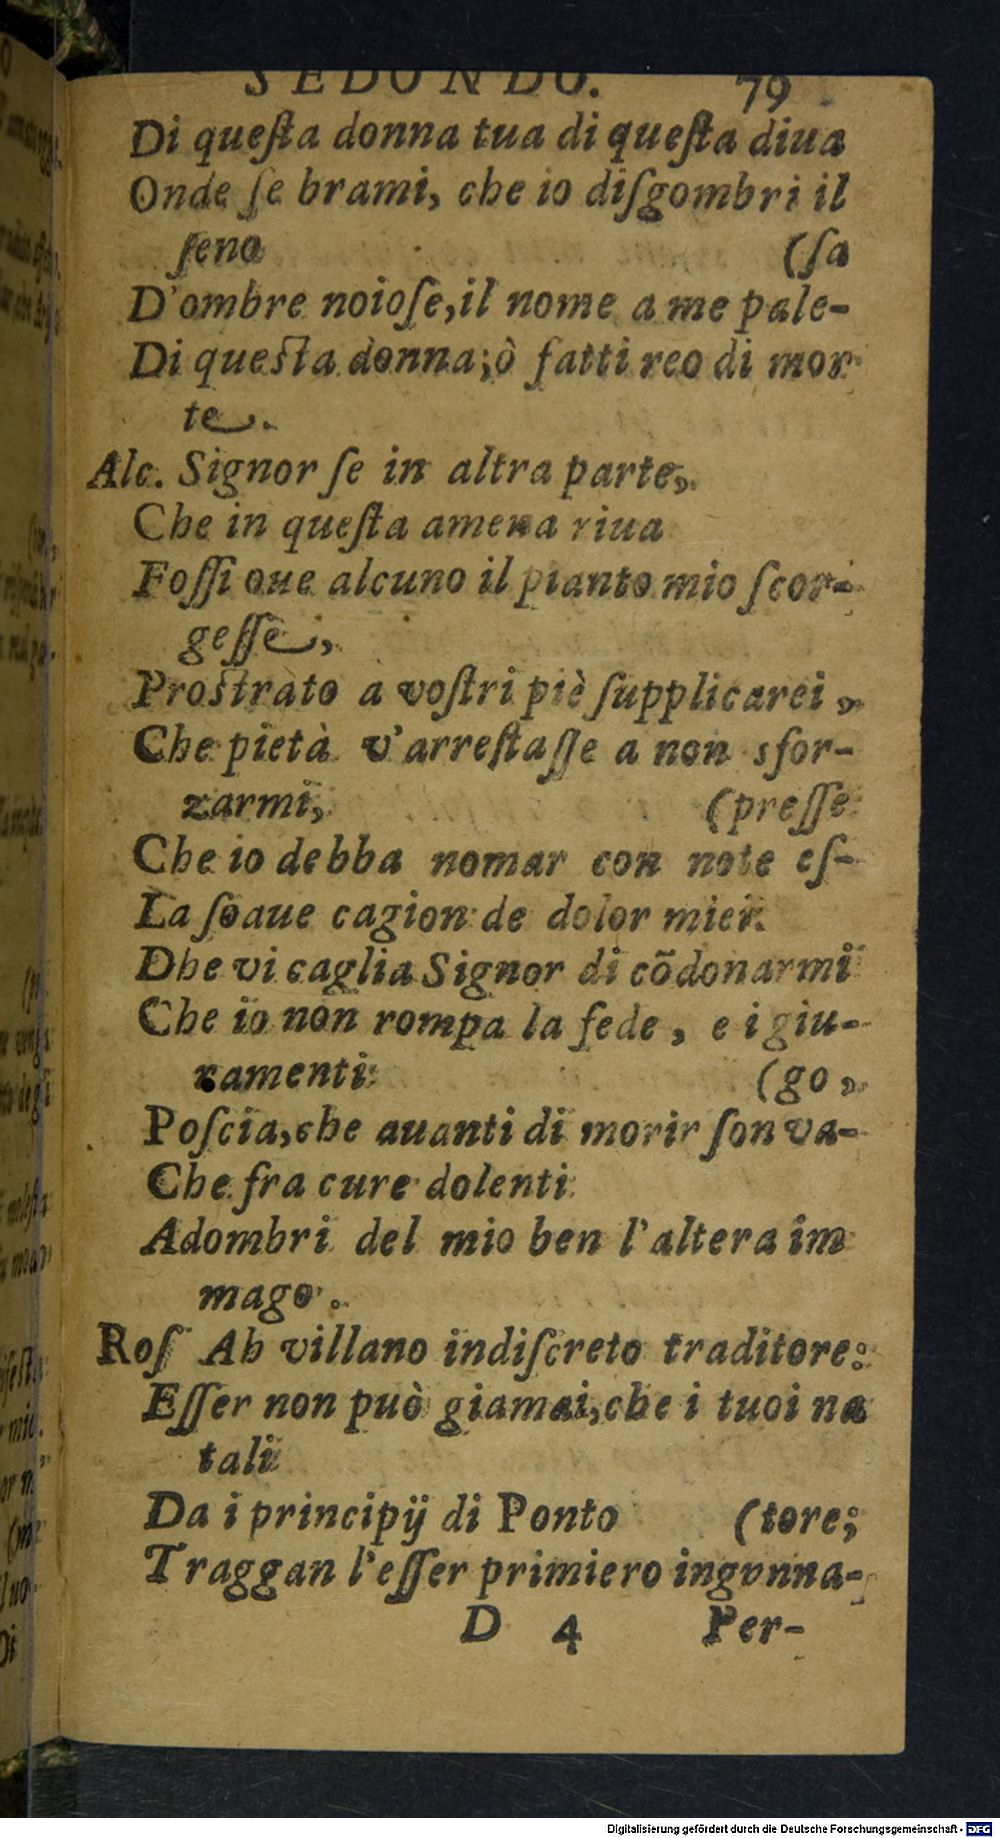 SEDONDO. 79
Di queſta donna tua di queſta diua
Onde ſe brami, che io diſgombri il
ſeno (ſa
D'ombre noioſe,il nome a me pale-
Di queſta donna;ò fatti reo di mor
te.
Alc. Signor ſe in altra parte,
Che in queſta amena riua
Foſſi oue alcuno il pianto mio ſcor-
geſſe,
Proſtrato a voſtri piè ſupplicarei,
Che pietà v'arreſtaſſe a non sfor-
zarmi, (preſſe
Che io debba nomar con note eſ-
La ſoaue cagion de dolor miei.
Dhe vi caglia Signor di cõdonarmi
Che io non rompa la fede, e i giu-
ramenti (go,
Poſcia,che auanti di morir ſon va-
Che fra cure dolenti
Adombri del mio ben l'altera im
mago.
Roſ Ah villano indiſcreto traditore:
Eſſer non può giamai,che i tuoi na
tali
Da i principij di Ponto (tore;
Traggan l'eſſer primiero ingvnna-
D 4 Per-
Digitalisierung gefördert durch die Deutsche Forschungsgemeinschaft - DFG